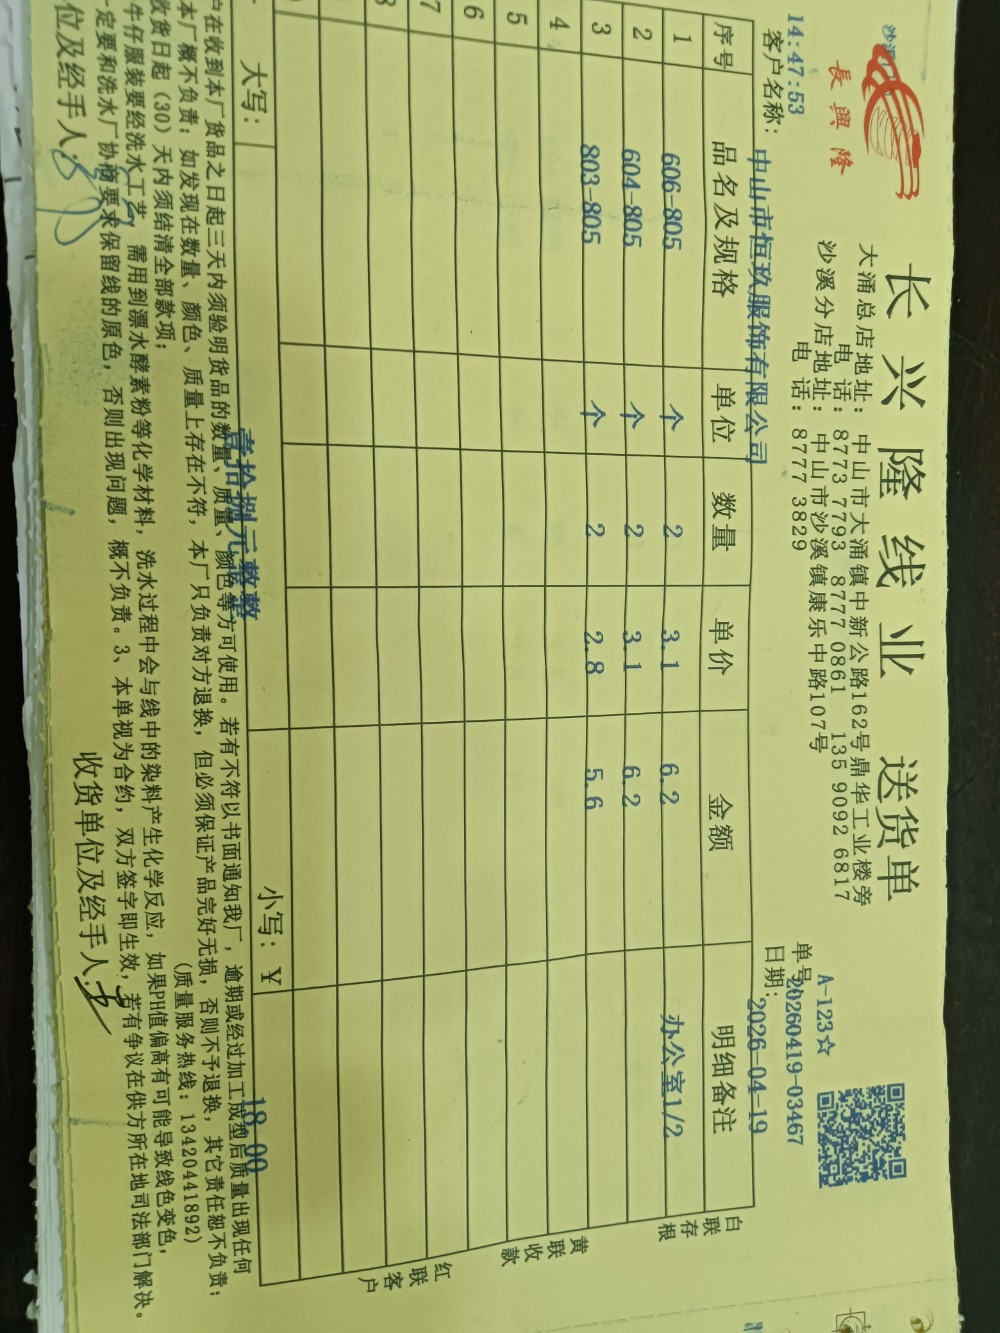 長興隆
长兴隆线业 送货单
大涌总店地址：中山市大涌镇中新公路162号鼎华工业楼旁
电 话：8773 7793 8777 0861 135 9092 6817
沙溪分店地址：中山市沙溪镇康乐中路107号
电 话：8777 3829
A-123☆
14:47:53
单号：20260419-03467
客户名称：中山市恒玖服饰有限公司
日期：2026-04-19
序号 品名及规格 单位 数量 单价 金额 明细备注
1 606-805 个 2 3.1 6.2 办公室1/2
2 604-805 个 2 3.1 6.2
3 803-805 个 2 2.8 5.6
4
5
6
7
8
大写：壹拾捌元整整 小写：¥ 18.00
白联存根
黄联收款
红联客户
户在收到本厂货品之日起三天内须验明货品的数量、质量、颜色等方可使用。若有不符以书面通知我厂，逾期或经过加工成型后质量出现任何
本厂概不负责；如发现在数量、颜色、质量上存在不符，本厂只负责对方退换，但必须保证产品完好无损，否则不予退换，其它责任恕不负责；
收货日起（30）天内须结清全部款项； （质量服务热线：13420441892）
牛仔服装要经洗水工艺，需用到漂水酵素粉等化学材料，洗水过程中会与线中的染料产生化学反应，如果PH值偏高有可能导致线色变色，
定要和洗水厂协商要求保留线的原色，否则出现问题，概不负责。3、本单视为合约，双方签字即生效，若有争议在供方所在地司法部门解决。
位及经手人： 收货单位及经手人：